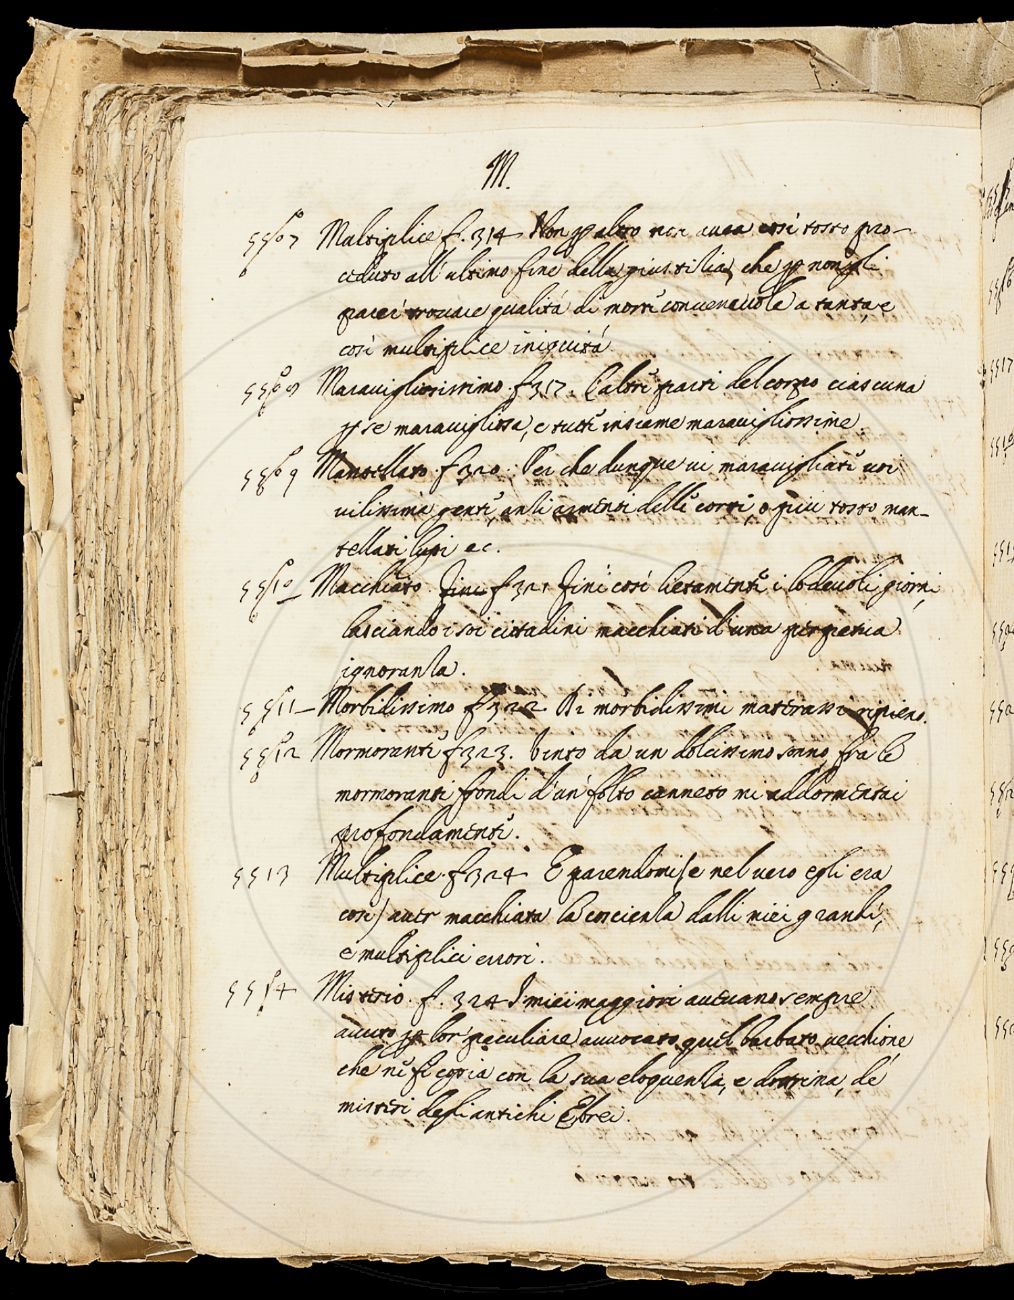 M.
5507 Multiplice f. 314 Non p altro non avea così tosto pro-
ceduto all'ultimo fine della giustitia, che p non gli
parer trovare qualità di morte convenevole a tanta, e
così multiplice iniquità
5508 Maravigliosissimo f 317. L'altre parti del corpo ciascuna
p se maravigliosa, e tutte insieme maravigliosime.
5509 Mantellato f 320. Per che dunque vi maravigliate voi
vilissima gente, anzi armenti delle corti, o più tosto man-
tellati lupi ec.
5510 Macchiato f 321 Finì così lietamente i lodevoli giorni,
lasciando i soi cittadini macchiati d'una perpetua
ignoranza.
5511 Morbidissimo f 322. Di morbidissimi matterassi ripieno.
5512 Mormorante f 323. Vinto da un dolcissimo sonno, fra le
mormoranti frondi d'un folto canneto mi addormentai
profondamente.
5513 Multiplice f 324 E parendomi (e nel vero egli era
così) aver macchiata la coscienza dalli miei grandi,
e multiplici errori.
5514 Misterio. f. 324 I miei maggiori avevano sempre
avuto p lor peculiare avvocato quel barbato vecchione
che significa con la sua eloquenza, e dottrina, de'
misteri degli antichi Ebrei.